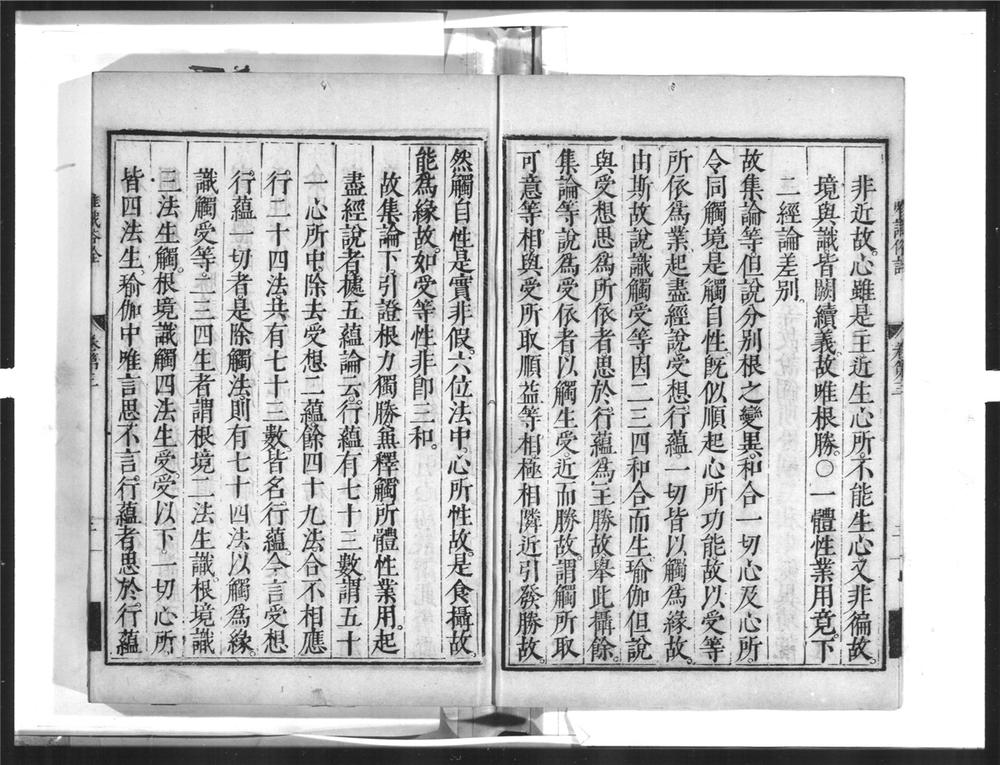 非近故。心雖是主近生心所。不能生心又非徧故。
境與識皆闕續義。故唯根勝。〇一體性業用竟。下
二經論差別。
故集論等。但說分別根之變異。和合一切心及心所。
令同觸境。是觸自性。既似順起心所功能。故以受等
所依為業。起盡經說受想行蘊一切皆以觸為緣故。
由斯故說識觸受等因二三四和合而生。瑜伽但說
與受想思為所依者。思於行蘊為主勝故。舉此攝餘。
集論等說為受依者。以觸生受。近而勝故。謂觸所取
可意等相。與受所取順益等相。極相隣近引發勝故。
然觸自性是實非假。六位法中心所性故。是食攝故。
能為緣故。如受等性非即三和。
故集論下。引證根力獨勝。兼釋觸所體性業用。起
盡經說者。據五蘊論云。行蘊有七十三數。謂五十
一心所中。除去受想二蘊。餘四十九法。合不相應
行二十四法。共有七十三數。皆名行蘊。今言受想
行蘊一切者。是除觸法。則有七十四法以觸為緣。
識觸受等二三四生者。謂根境二法生識。根境識
三法生觸。根境識觸四法生受。受以下。一切心所
皆四法生。瑜伽中唯言思不言行蘊者。思於行蘊
卷第三